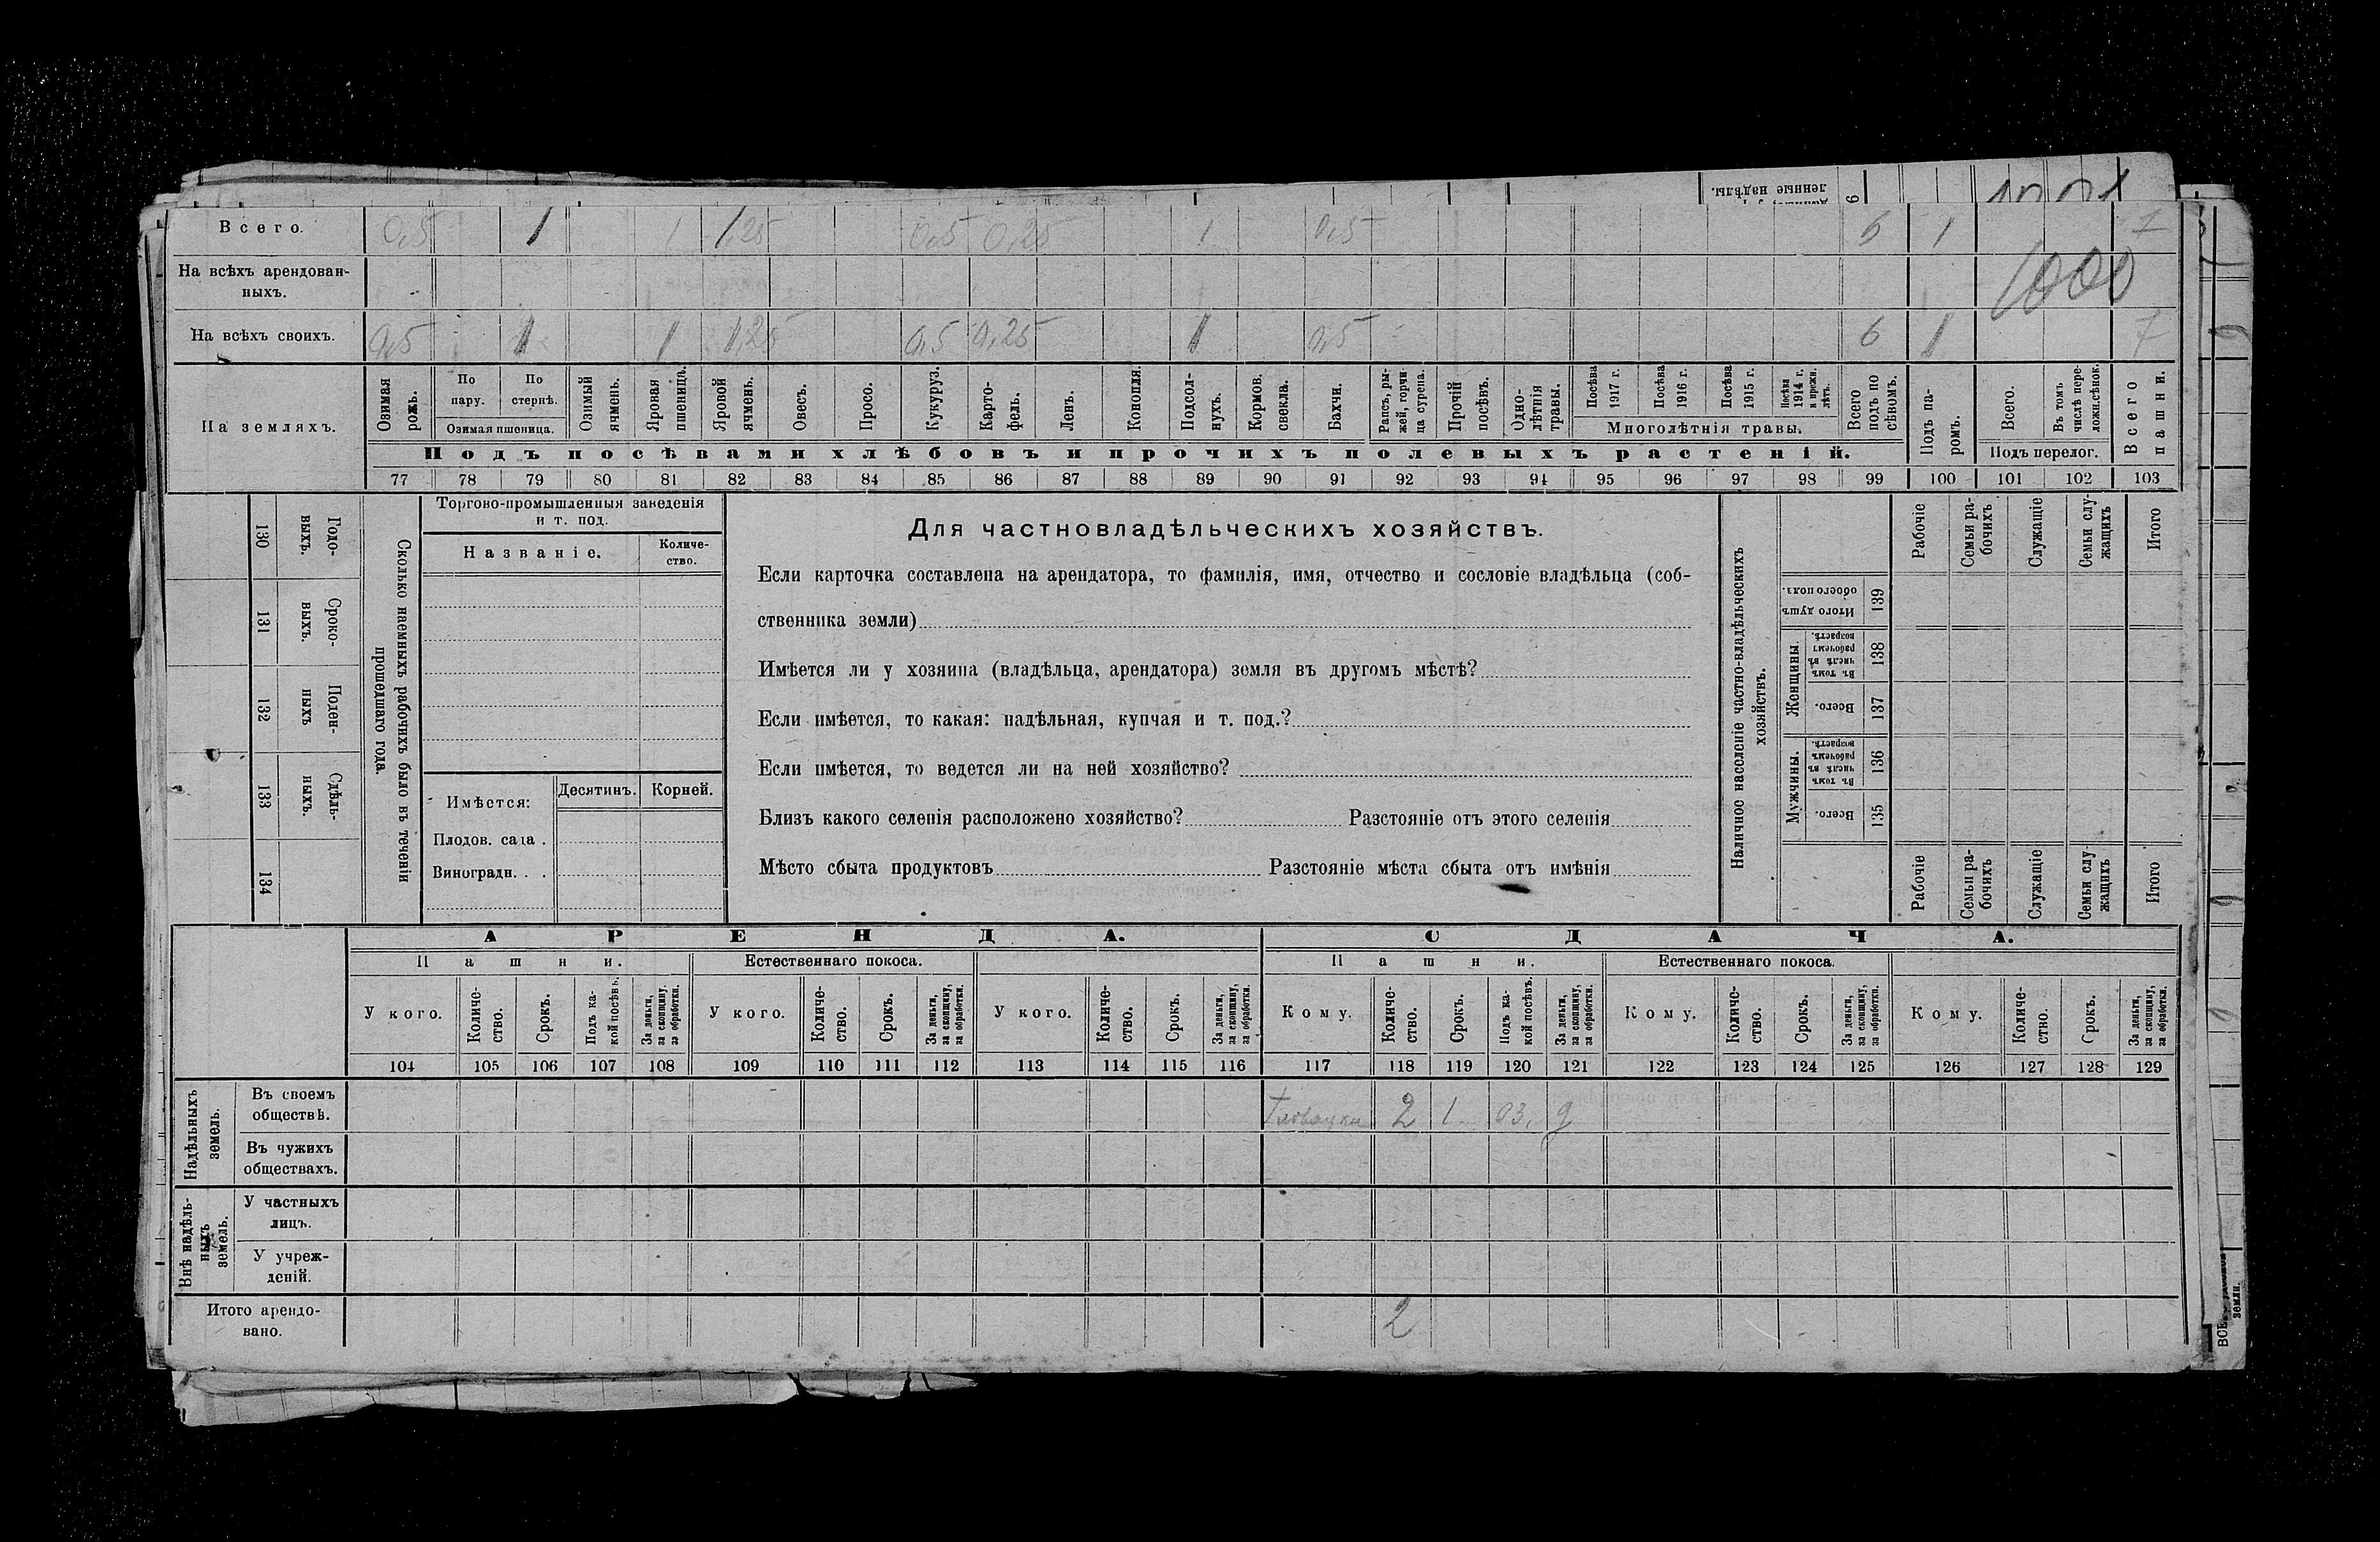 ленные надѣлы.
6
1001
Всего. 0,5 1 1 1,25 0,5 0,25 1 0,5 6 1 7
На всѣхъ арендован-
ныхъ.
1000
На всѣхъ своихъ. 0,5 1 1 1,25 0,5 0,25 1 0,5 6 1 7
На земляхъ.
Озимая рожь.
По пару.
По стернѣ.
Озимая пшеница.
Озимый ячмень.
Яровая пшеница.
Яровой ячмень.
Овесъ.
Просо.
Кукуруз.
Карто-
фель.
Ленъ.
Конопля.
Подсол-
нухъ.
Кормов. свекла.
Бахчи.
Рапсъ, ры-
жей, горчи-
ца сурепа.
Прочій посѣвъ.
Одно-
лѣтнія травы.
Посѣва 1917 г.
Посѣва 1916 г.
Посѣва 1915 г.
Посѣва 1914 г. и прежн. лѣтъ.
Многолѣтнія травы.
Всего подъ по
сѣвомъ.
Подъ па-
ромъ.
Всего.
Въ томъ числѣ пере-
ложн.сѣнок.
Подъ перелог.
Всего пашни.
Подъ посѣвами хлѣбовъ и прочихъ полевыхъ растеній.
77 78 79 80 81 82 83 84 85 86 87 88 89 90 91 92 93 94 95 96 97 98 99 100 101 102 103
Сколько наемныхъ рабочихъ было въ теченіи
прошедшаго года.
Годо-
выхъ.
130
Сроко-
выхъ.
131
Поден-
ныхъ
132
Сдѣль-
ныхъ.
133
134
Торгово-промышленныя заведенія
и т. под.
Названіе.
Количе-
ство.
Имѣется:
Десятинъ.
Корней.
Плодов. сада .
Виноградн. . .
Для частновладѣльческихъ хозяйствъ.
Если карточка составлена на арендатора, то фамилія, имя, отчество и сословіе владѣльца (соб-
ственника земли)
Имѣется ли у хозяина (владѣльца, арендатора) земля въ другомъ мѣстѣ?
Если имѣется, то какая: надѣльная, купчая и т. под.?
Если имѣется, то ведется ли на ней хозяйство?
Близъ какого селенія расположено хозяйство? Разстояніе отъ этого селенія
Мѣсто сбыта продуктовъ Разстояніе мѣста сбыта отъ имѣнія
Наличное населеніе частно-владѣльческихъ
хозяйствъ.
Рабочіе
Семьи ра-
бочихъ
Служащіе
Семьи слу-
жащихъ
Итого
Итого душъ обоего пола.
139
Женщины.
Въ томъ числѣ въ рабочемъ возрастѣ.
138
Всего.
137
Мужчины.
Въ томъ числѣ въ рабочемъ возрастѣ.
136
Всего.
135
Рабочіе
Семьи ра-
бочихъ
Служащіе
Семьи слу-
жащихъ
Итого
АРЕНДА. СДАЧА.
Пашни. Естественнаго покоса. Пашни. Естественнаго покоса.
У кого.
Количе-
ство.
Срокъ.
Подъ ка-
кой посѣвъ.
За деньги, за скопщину, за обработки.
У кого.
Количе-
ство.
Срокъ.
За деньги, за скопщину, за обработки.
У кого.
Количе-
ство.
Срокъ.
За деньги, за скопщину, за обработки.
Кому.
Количе-
ство.
Срокъ.
Подъ ка-
кой посѣвъ.
За деньги, за скопщину, за обработки.
Кому.
Количе-
ство.
Срокъ.
За деньги, за скопщину, за обработки.
Кому.
Количе-
ство.
Срокъ.
За деньги, за скопщину, за обработки.
104 105 106 107 108 109 110 111 112 113 114 115 116 117 118 119 120 121 122 123 124 125 126 127 128 129
Надѣльныхъ
земель.
Въ своемъ
обществѣ.
2 1 оз. д
Въ чужихъ
обществахъ.
Внѣ надѣль-
ныхъ
земель.
У частныхъ
лицъ.
У учреж-
деній.
Итого арендо-
вано.
2
земли.